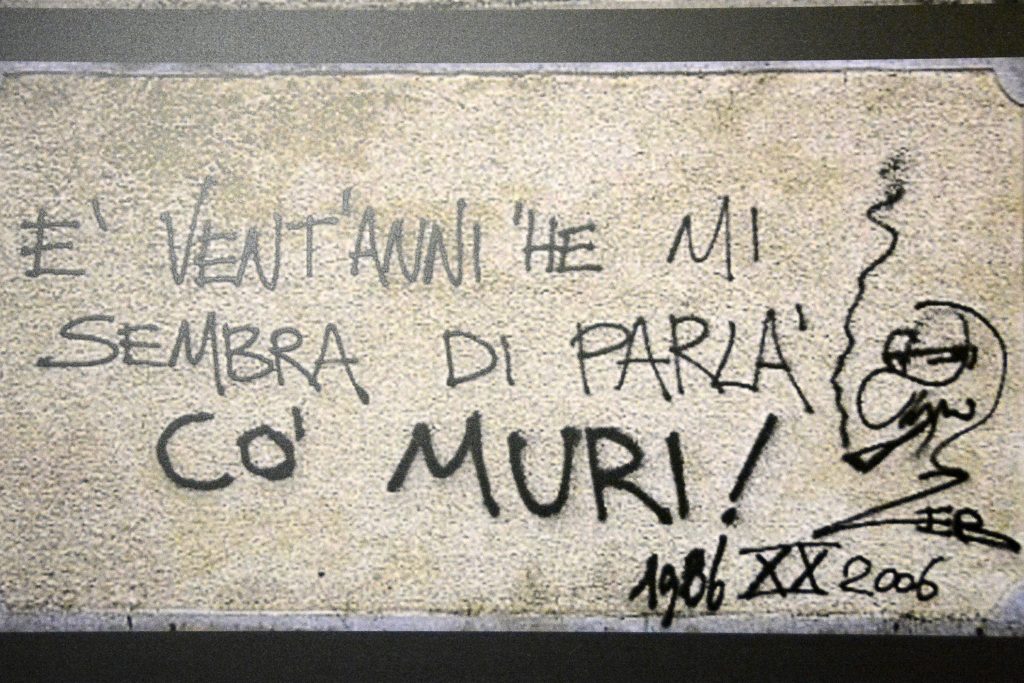 E' VENT'ANNI 'HE MI
SEMBRA DI PARLA'
CO' MURI!
ZEB
1986 XX 2006